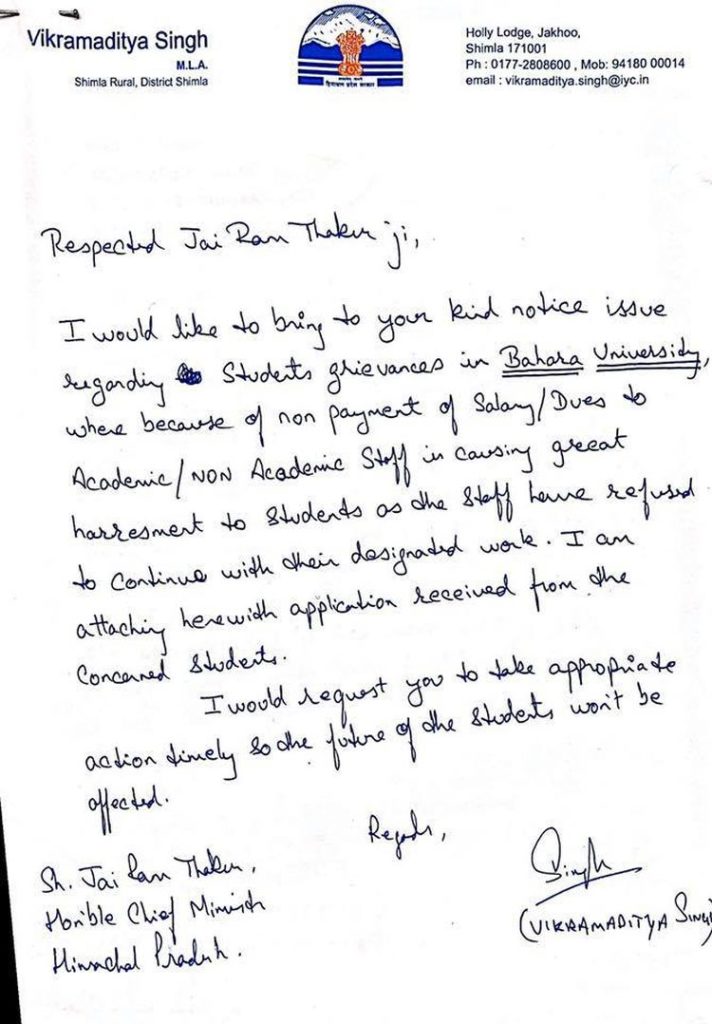 Vikramaditya Singh
M.L.A.
Shimla Rural, District Shimla
हिमाचल प्रदेश सरकार
Holly Lodge, Jakhoo,
Shimla 171001
Ph : 0177-2808600 , Mob: 94180 00014
email : vikramaditya.singh@iyc.in
Respected Jai Ram Thakur ji,
I would like to bring to your kind notice issue
regarding Students grievances in Bahara University,
where because of non payment of Salary/Dues to
Academic/NON Academic Staff in causing greeat
harresment to students as the staff have refused
to continue with their designated work. I am
attaching herewith application received from the
concerned students.
I would request you to take appropriate
action timely so the future of the students won't be
affected.
Regads,
Sh. Jai Ram Thakur,
Hon'ble Chief Minister
Himachal Pradesh.
Singh
(VIKRAMADITYA SINGH)